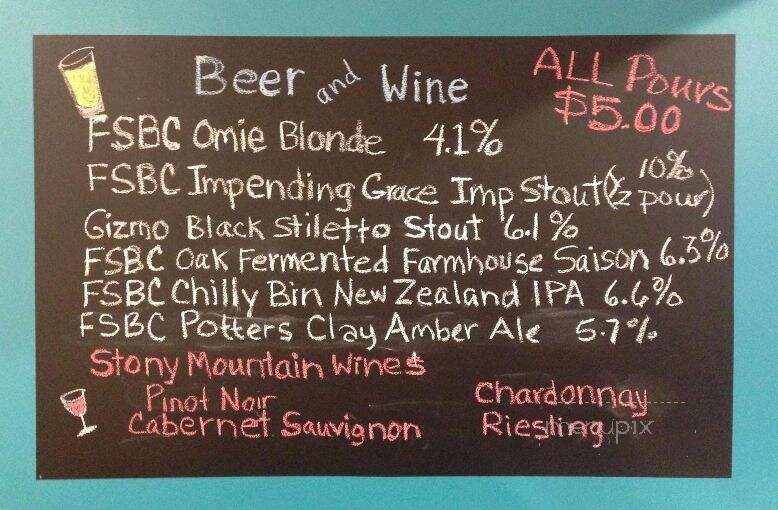 Beer and Wine
ALL Pours
$5.00
FSBC Omie Blonde 4.1%
FSBC Impending Grace Imp Stout 10% (1/2 pour)
Gizmo Black Stiletto Stout 6.1%
FSBC Oak Fermented Farmhouse Saison 6.3%
FSBC Chilly Bin New Zealand IPA 6.6%
FSBC Potters Clay Amber Ale 5.7%
Stony Mountain Wines
Pinot Noir Chardonnay
Cabernet Sauvignon Riesling
menupix